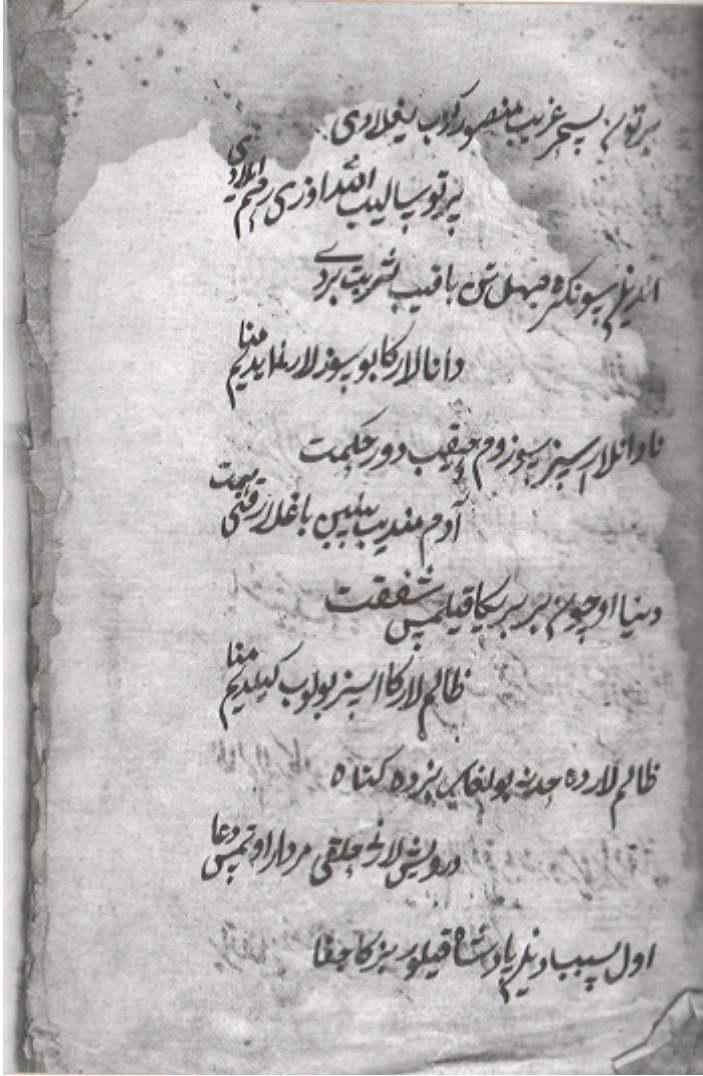 بر تون سحر غریب منصور کوب یغلادی
پرتو سالیب الله اوزی رحم ایلادی
اندین سونکره چهل تن باقیب شربت بردی
دانالارکا بو سوزلارنی ایدیم منا
سوزوم چیقیب دور حکمت
آدم مندیب بیلین باغلار قنی همت
دنیا اوچون بر بریکا قیلمس شفقت
ظالم لارکا اسیر بولوب کیلدیم منا
ظالم لارده بولغای بزده کناه
درویش لارنی حلقی مردار اوتمس دعا
اول سبب دین پادشاه قیلور بیزکا جفا